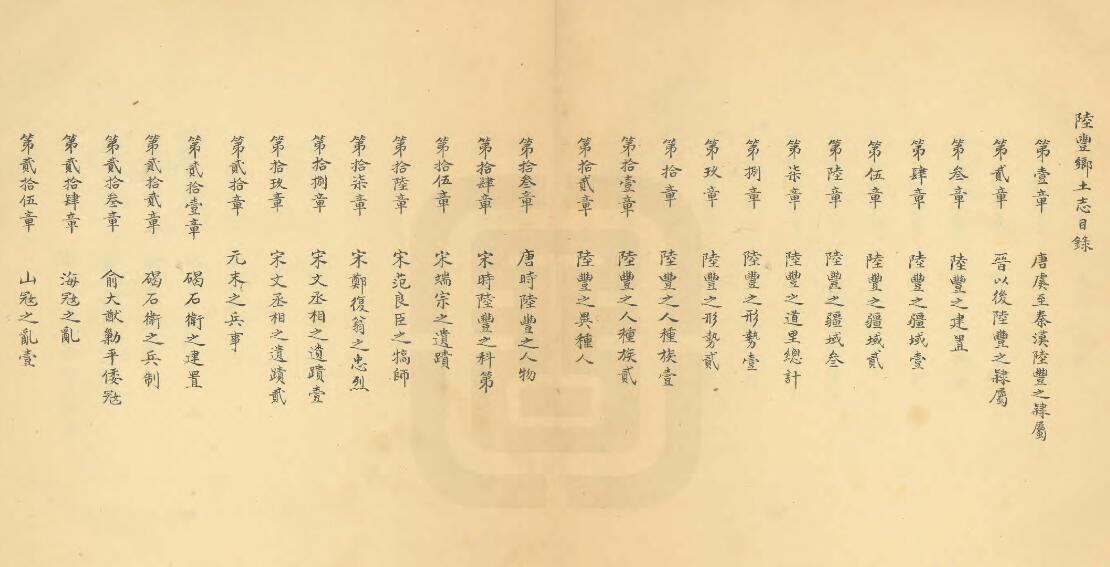 陸豐鄉土志目錄
第壹章 唐虞至秦漢陸豐之隸屬
第貳章 晉以後陸豐之隸屬
第叁章 陸豐之建置
第肆章 陸豐之疆域壹
第伍章 陸豐之疆域貳
第陸章 陸豐之疆域叁
第柒章 陸豐之道里總計
第捌章 陸豐之形勢壹
第玖章 陸豐之形勢貳
第拾章 陸豐之人種族壹
第拾壹章 陸豐之人種族貳
第拾貳章 陸豐之異種人
第拾叁章 唐時陸豐之人物
第拾肆章 宋時陸豐之科第
第拾伍章 宋端宗之遺蹟
第拾陸章 宋范良臣之犒師
第拾柒章 宋鄭復翁之忠烈
第拾捌章 宋文丞相之遺蹟壹
第拾玖章 宋文丞相之遺蹟貳
第貳拾章 元末之兵事
第貳拾壹章 碣石衛之建置
第貳拾貳章 碣石衛之兵制
第貳拾叁章 俞大猷勦平倭寇
第貳拾肆章 海寇之亂
第貳拾伍章 山寇之亂壹